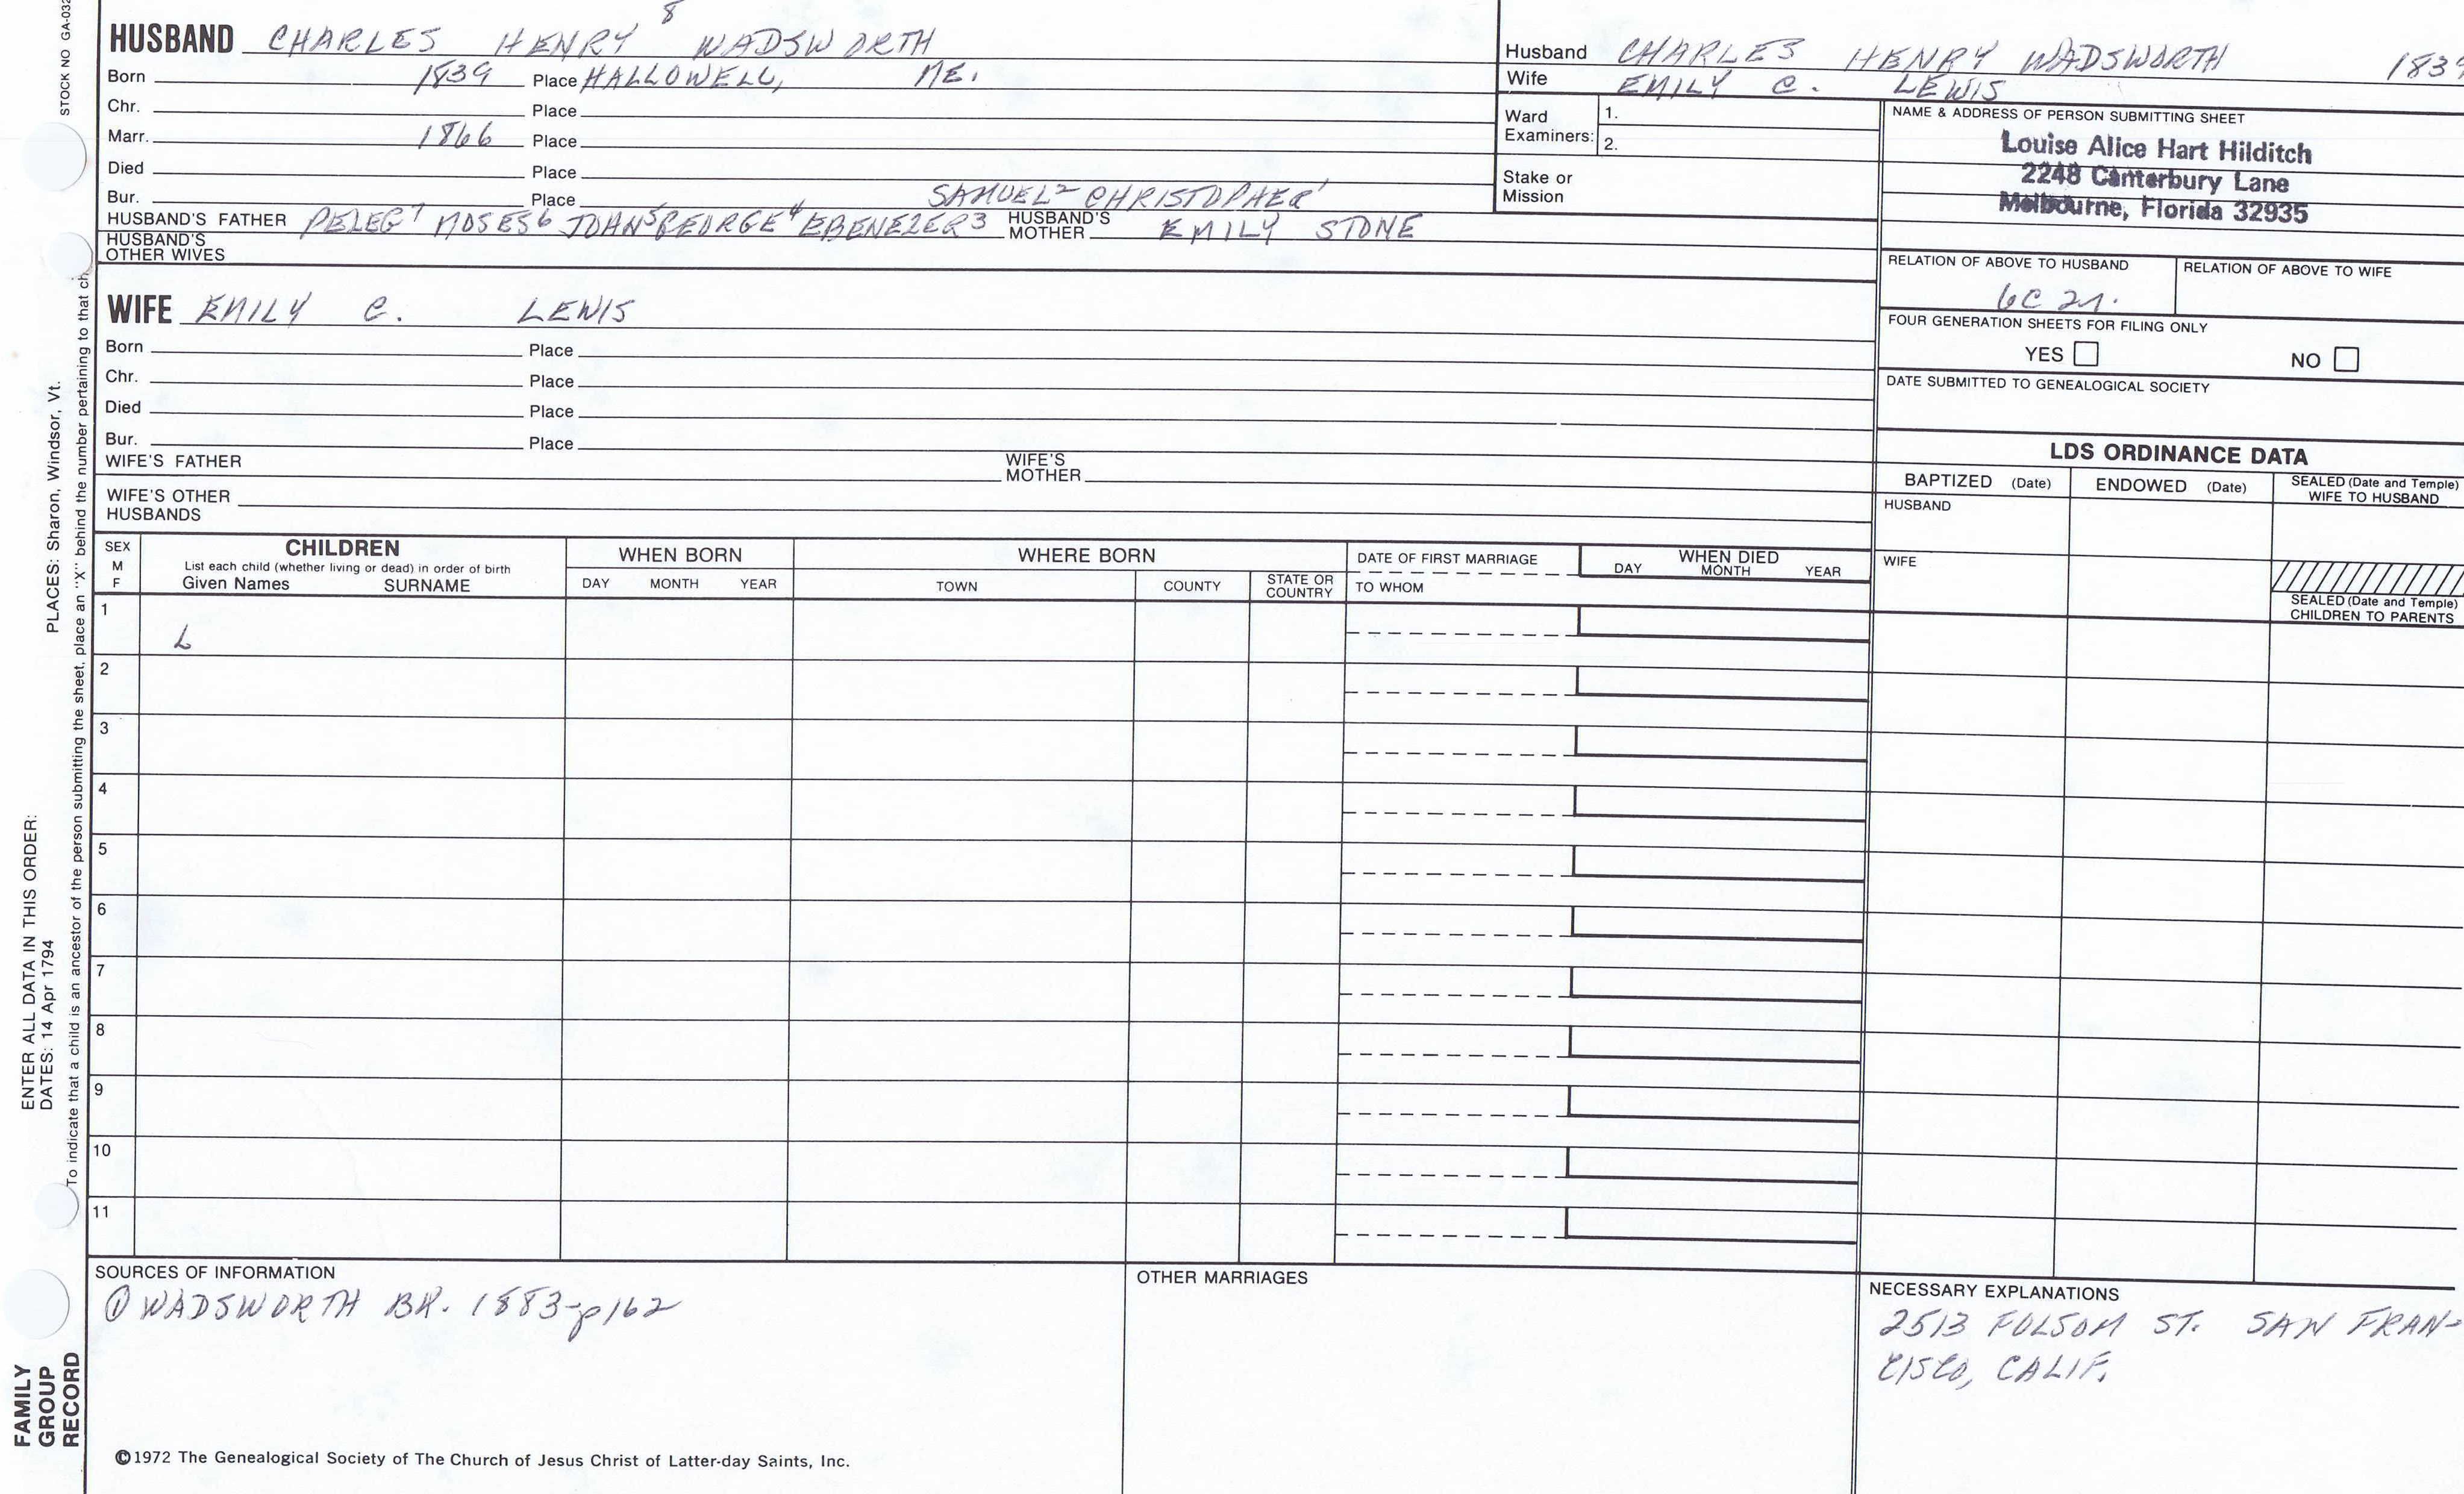 STOCK NO GA-032
8
HUSBAND CHARLES HENRY WADSWORTH
Born 1839 Place HALLOWELL, ME.
Chr. Place
Marr. 1866 Place
Died Place
Bur. Place SAMUEL2 CHRISTOPHER1
HUSBAND'S FATHER PELEG7 MOSES6 JOHN5 GEORGE4 EBENEZER3 HUSBAND'S MOTHER EMILY STONE
HUSBAND'S OTHER WIVES
Husband CHARLES HENRY WADSWORTH 1839
Wife EMILY C. LEWIS
Ward Examiners: 1.
2.
Stake or Mission
NAME & ADDRESS OF PERSON SUBMITTING SHEET
Louise Alice Hart Hilditch
2248 Canterbury Lane
Melbourne, Florida 32935
RELATION OF ABOVE TO HUSBAND RELATION OF ABOVE TO WIFE
FOUR GENERATION SHEETS FOR FILING ONLY
YES NO
DATE SUBMITTED TO GENEALOGICAL SOCIETY
WIFE EMILY C. LEWIS
Born Place
Chr. Place
Died Place
Bur. Place
WIFE'S FATHER WIFE'S MOTHER
WIFE'S OTHER HUSBANDS
LDS ORDINANCE DATA
BAPTIZED (Date) ENDOWED (Date) SEALED (Date and Temple) WIFE TO HUSBAND
HUSBAND
WIFE
SEALED (Date and Temple) CHILDREN TO PARENTS
SEX M F
CHILDREN
List each child (whether living or dead) in order of birth
Given Names SURNAME
WHEN BORN
DAY MONTH YEAR
WHERE BORN
TOWN COUNTY STATE OR COUNTRY
DATE OF FIRST MARRIAGE
TO WHOM
WHEN DIED
DAY MONTH YEAR
1
L
2
3
4
5
6
7
8
9
10
11
SOURCES OF INFORMATION
① WADSWORTH BK. 1883-p162
OTHER MARRIAGES
NECESSARY EXPLANATIONS
2513 FOLSOM ST. SAN FRAN-
CISCO, CALIF.
©1972 The Genealogical Society of The Church of Jesus Christ of Latter-day Saints, Inc.
FAMILY
GROUP
RECORD
ENTER ALL DATA IN THIS ORDER:
DATES: 14 Apr 1794 PLACES: Sharon, Windsor, Vt.
To indicate that a child is an ancestor of the person submitting the sheet, place an "X" behind the number pertaining to that ch